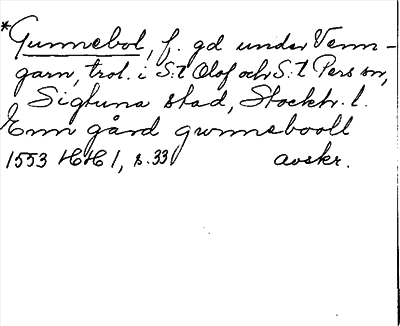 *Gunnebol, f. gd under Venn-
garn, trol. i S:t Olof och S:t Pers sn,
Sigtuna stad, Stockh. l.
Enn gård gwnnebooll
1553 HH 1, s. 33 avskr.